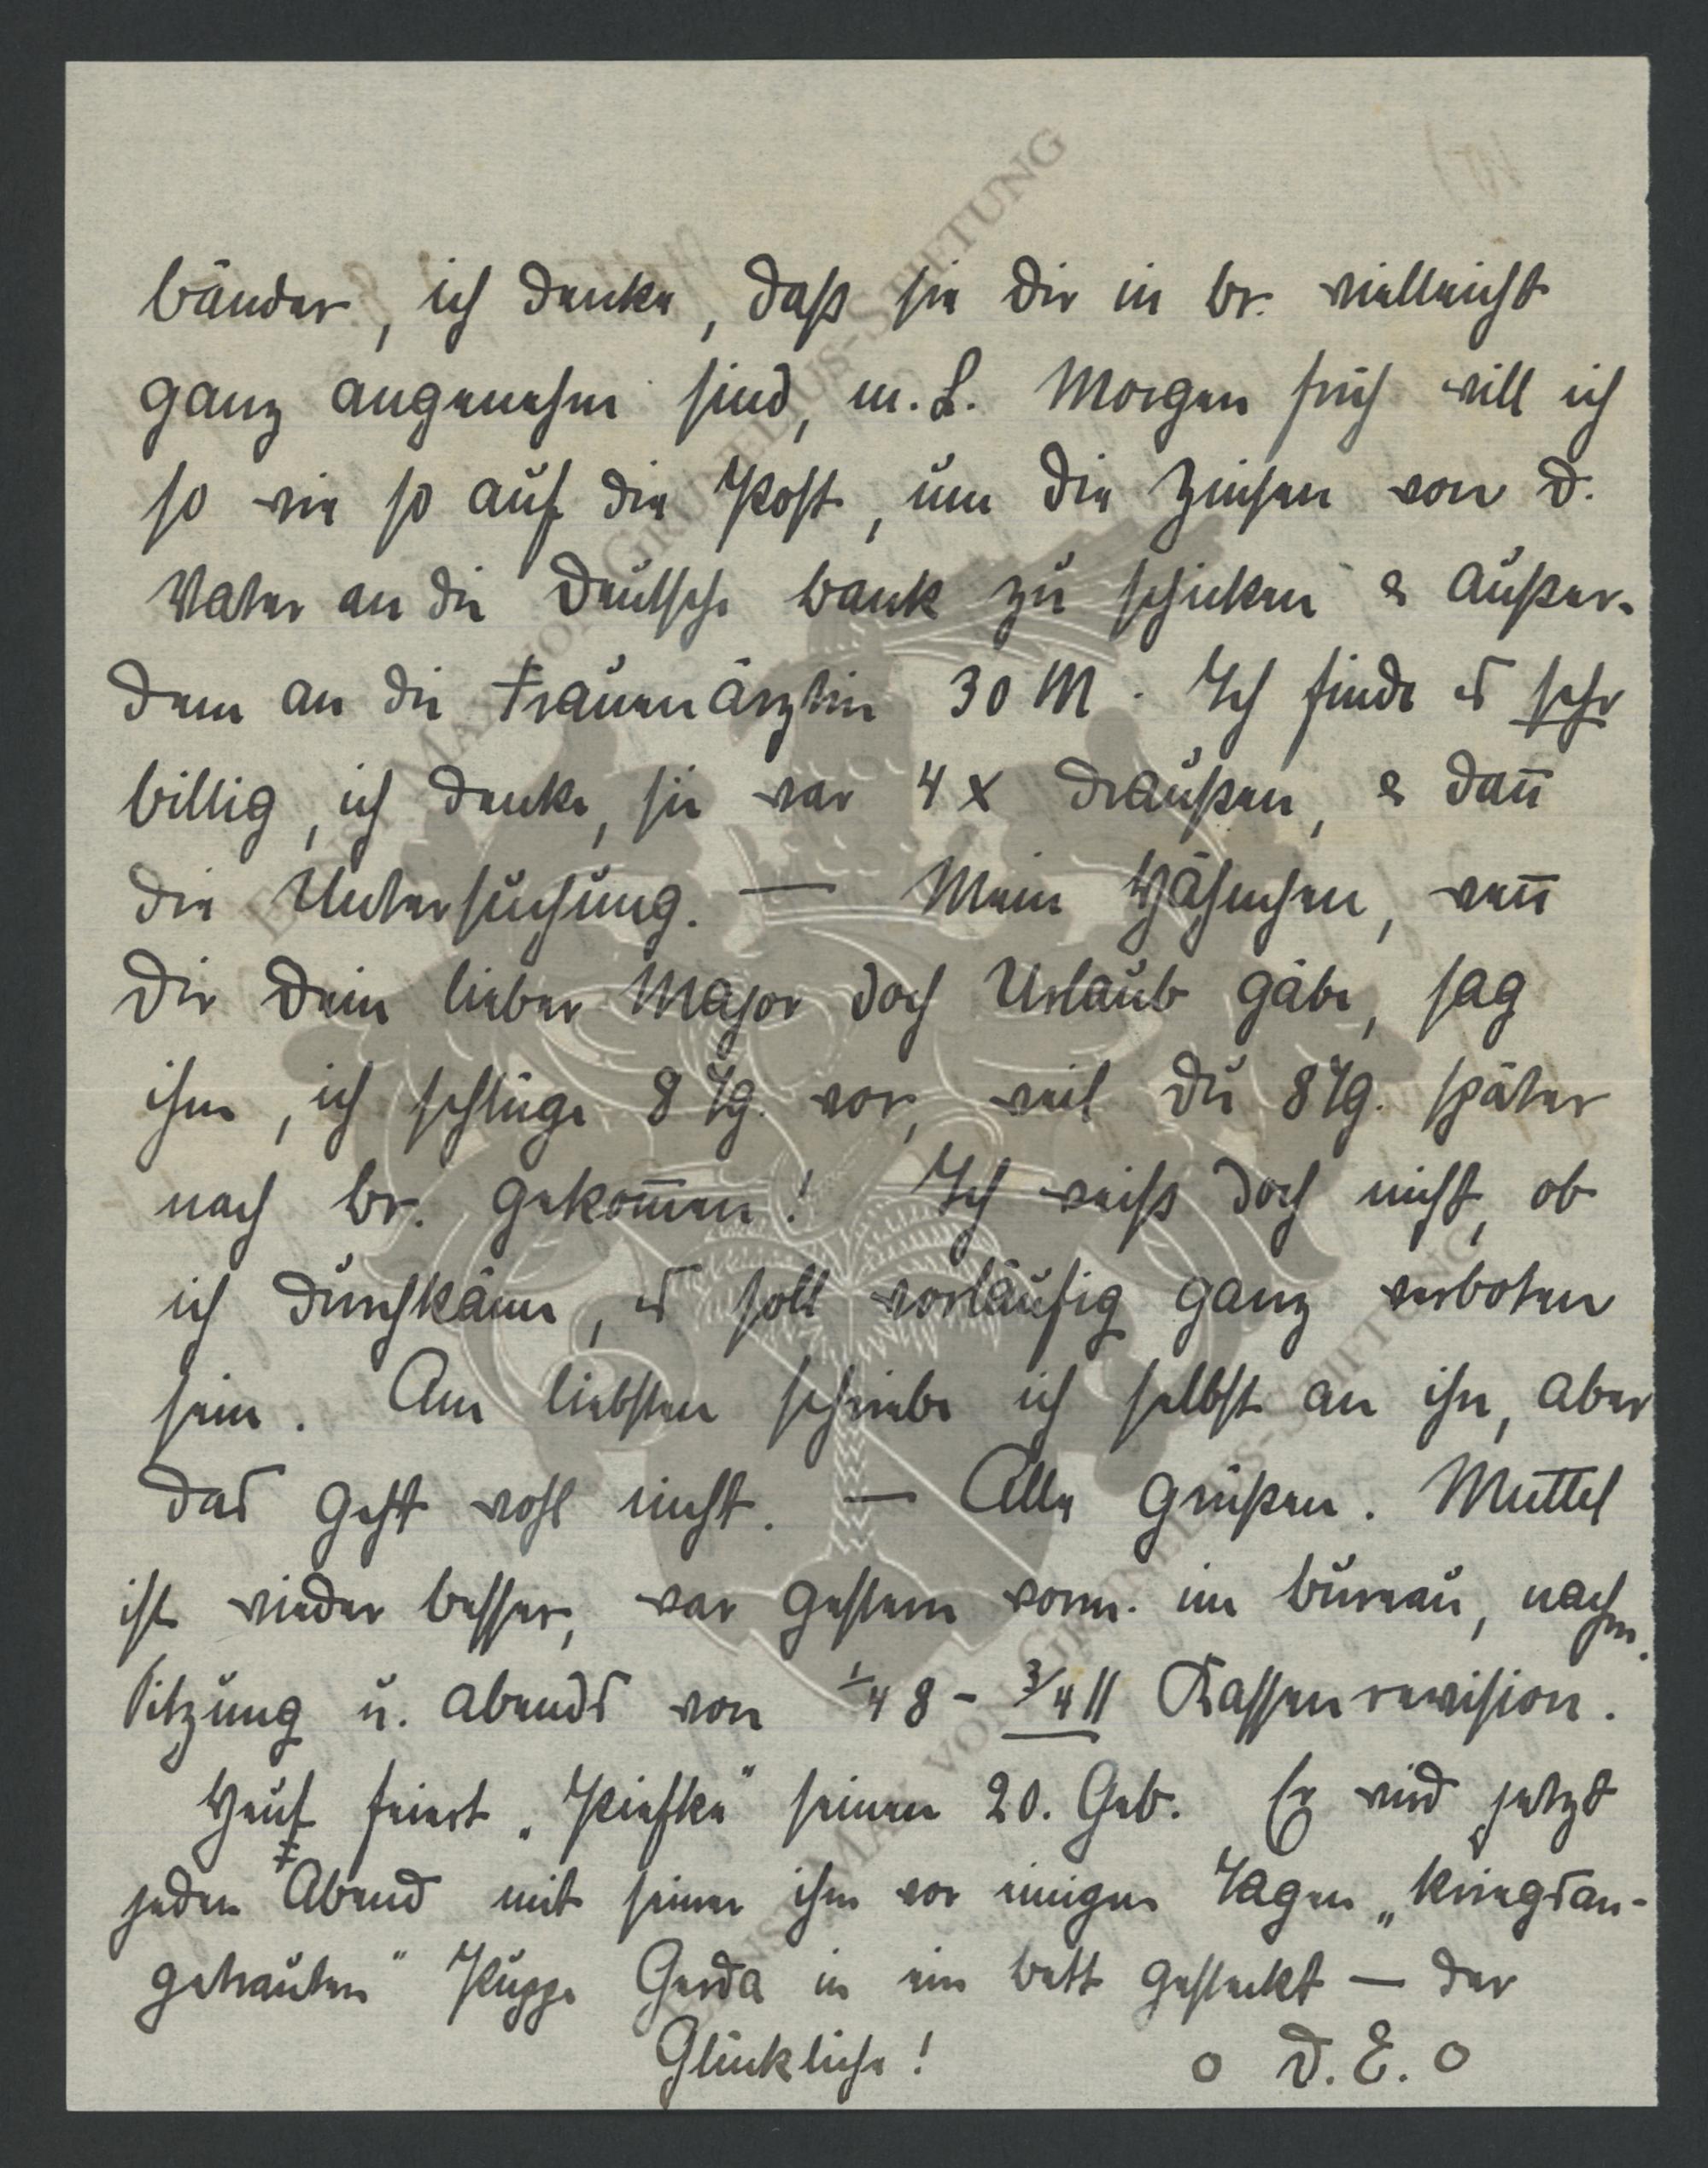 bänder, ich denke, daß sie Dir in Br. vielleicht
ganz angenehm sind, m. L. Morgen früh will ich
so wie so auf die Post, um die Zinsen von D.
Vater an die Deutsche Bank zu schicken & außer-
dem an die Frauenärztin 30 M. Ich finde es sehr
billig, ich denke, sie war 4 x draußen, & dañ
die Untersuchung. — Mein Hähnchen, weñ
Dir Dein lieber Major doch Urlaub gäbe, sag
ihm, ich schlüge 8 Tg. vor, weil Du 8 Tg. später
nach Br. gekom̅en! Ich weiß doch nicht, ob
ich durchkäme, es soll vorläufig ganz verboten
sein. Am liebsten schriebe ich selbst an ihn, aber
das geht wohl nicht. — Alle grüßen. Muttel
ist wieder besser, war gestern vorm. im Büreau, nachm.
Sitzung u. abends von ¼ 8 - ¾ 11 Kassenrevision.
Heut feiert „Piefke" seinen 20. Geb. Er wird jetzt
jeden Abend mit seiner ihm vor einigen Tagen „kriegsan-
getrauten" Puppe Gerda in ein Bett gesteckt — der
Glückliche! o D. E. o
ERNST MAX VON GRUNELIUS-STIFTUNG
ERNST MAX VON GRUNELIUS-STIFTUNG